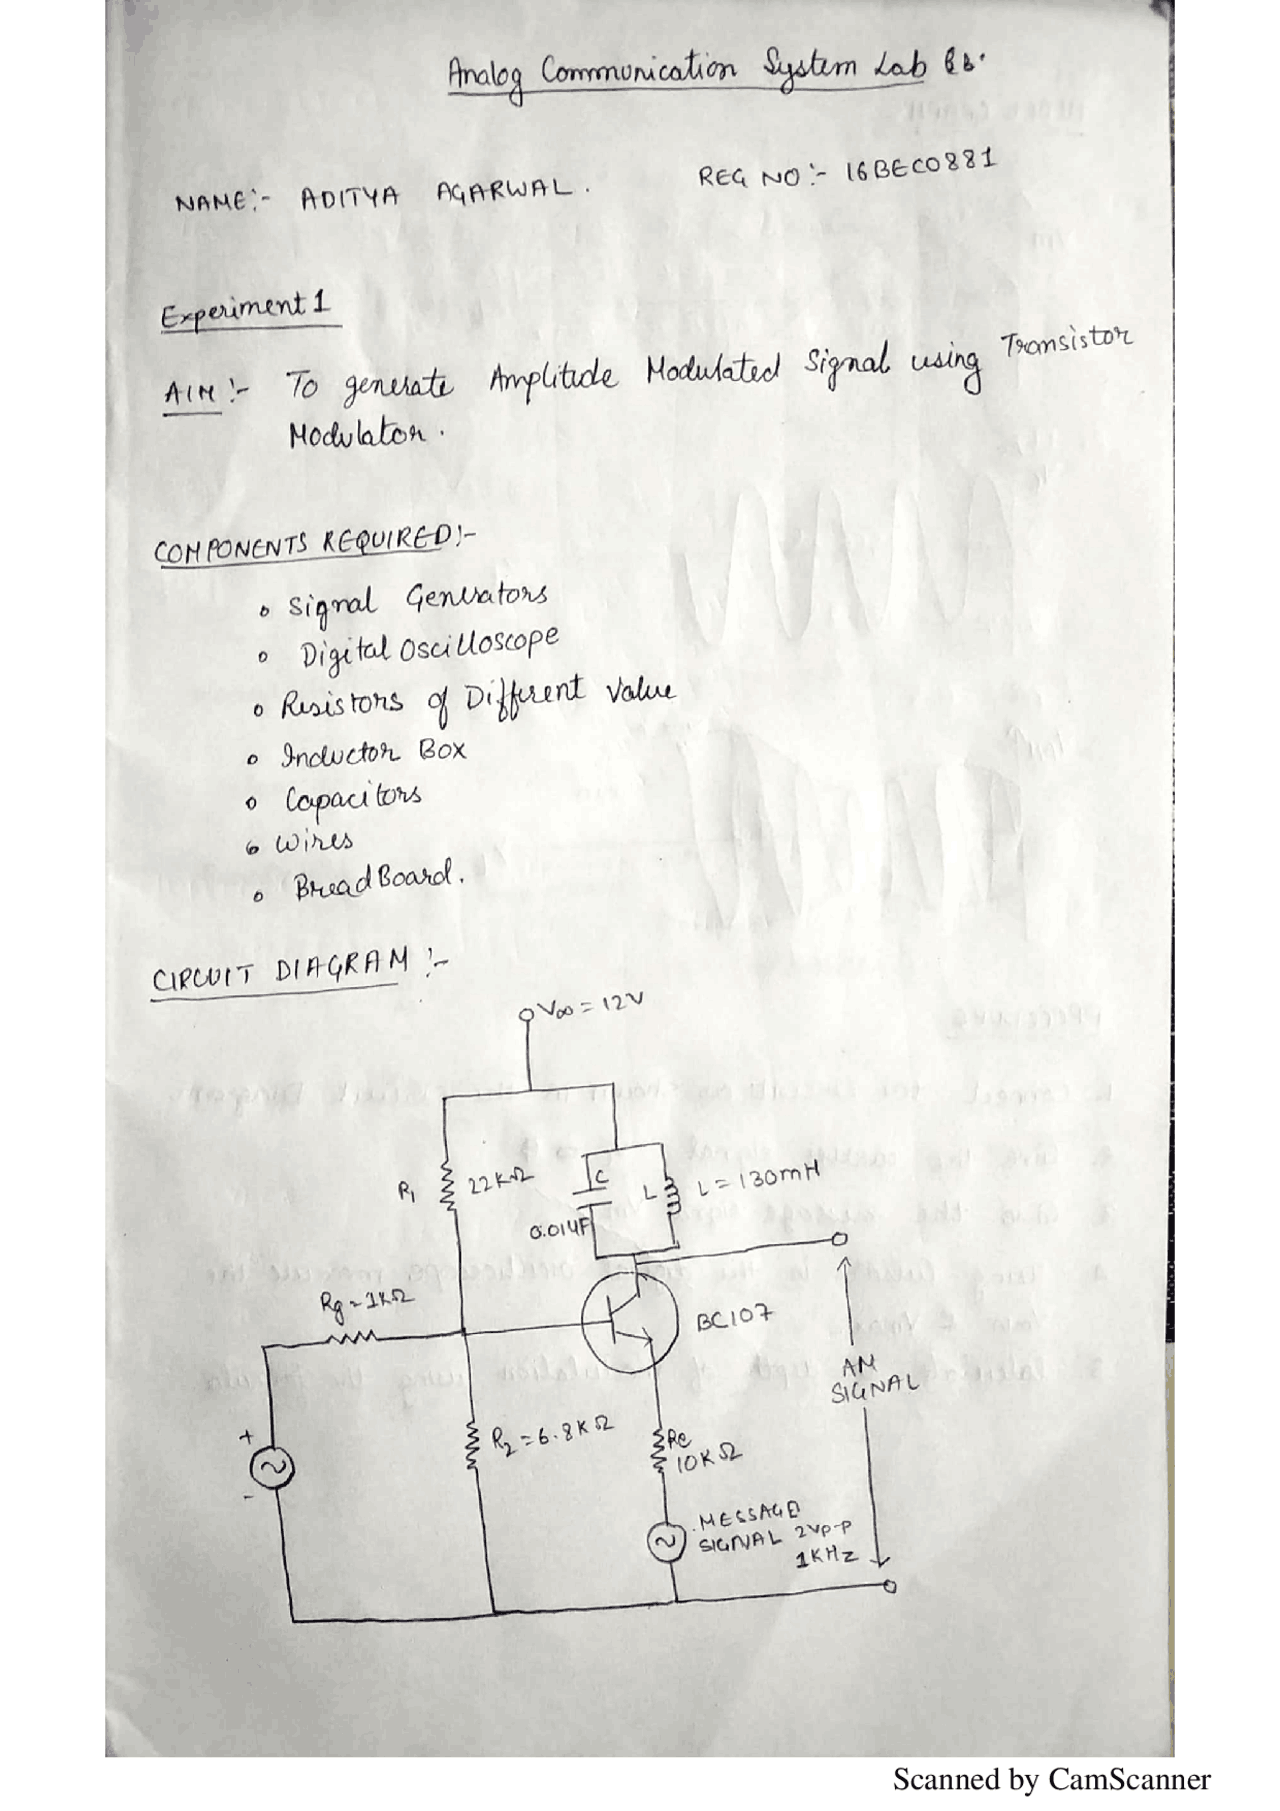 Analog Communication System Lab
NAME:- ADITYA AGARWAL. REG NO:- 16BEC0881
Experiment 1
AIM:- To generate Amplitude Modulated Signal using Transistor
Modulator.
COMPONENTS REQUIRED:-
Signal Generators
Digital Oscilloscope
Resistors of Different Value
Inductor Box
Capacitors
Wires
BreadBoard.
CIRCUIT DIAGRAM:-
= 12V
R1 22KΩ C L L=130mH
0.01μF
Rg=1KΩ
BC107
AM
SIGNAL
+
-
R2=6.8KΩ Re
10KΩ
MESSAGE
SIGNAL 2Vp-p
1KHz
Scanned by CamScanner